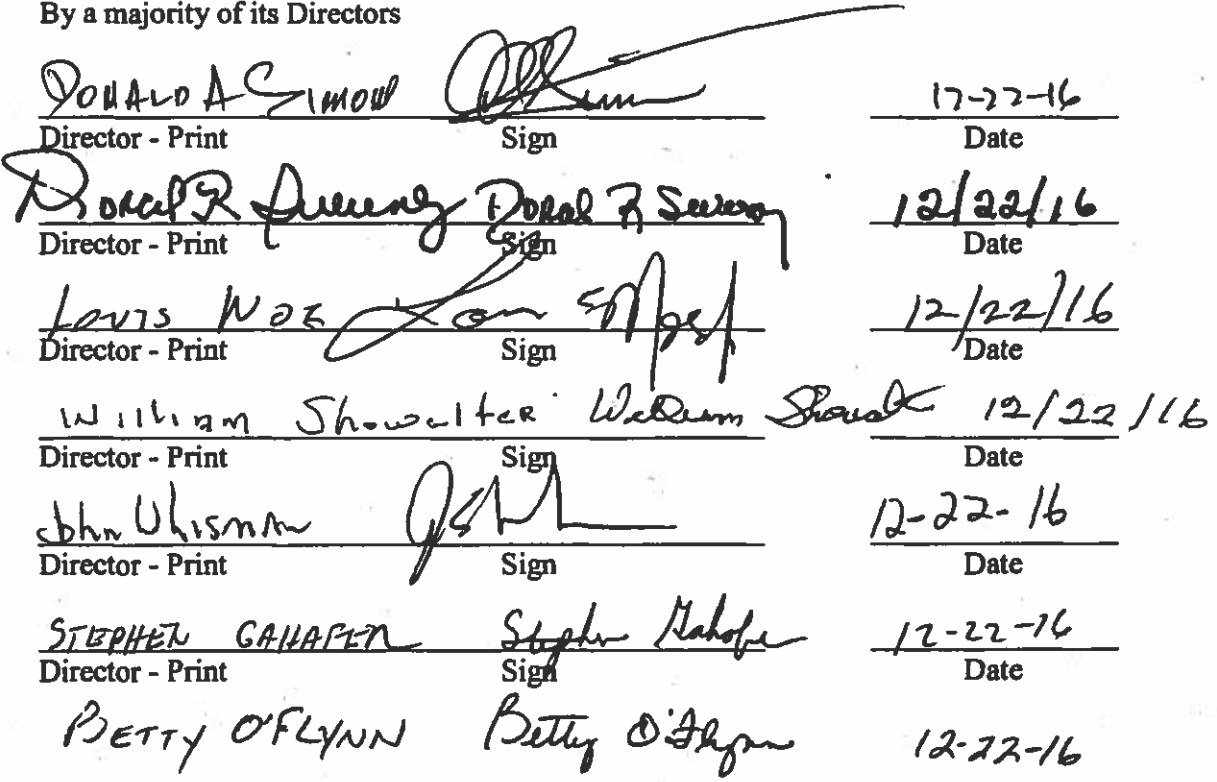 By a majority of its Directors
DONALD A SIMON 12-22-16
Director - Print Sign Date
Donal R Donal R 12/22/16
Director - Print Sign Date
LOUIS NOE 12/22/16
Director - Print Sign Date
William Showalter William 12/22/16
Director - Print Sign Date
John Whisman 12-22-16
Director - Print Sign Date
STEPHEN GAHAFER Stephen Gahafer 12-22-16
Director - Print Sign Date
BETTY O'FLYNN Betty O'Flynn 12-22-16